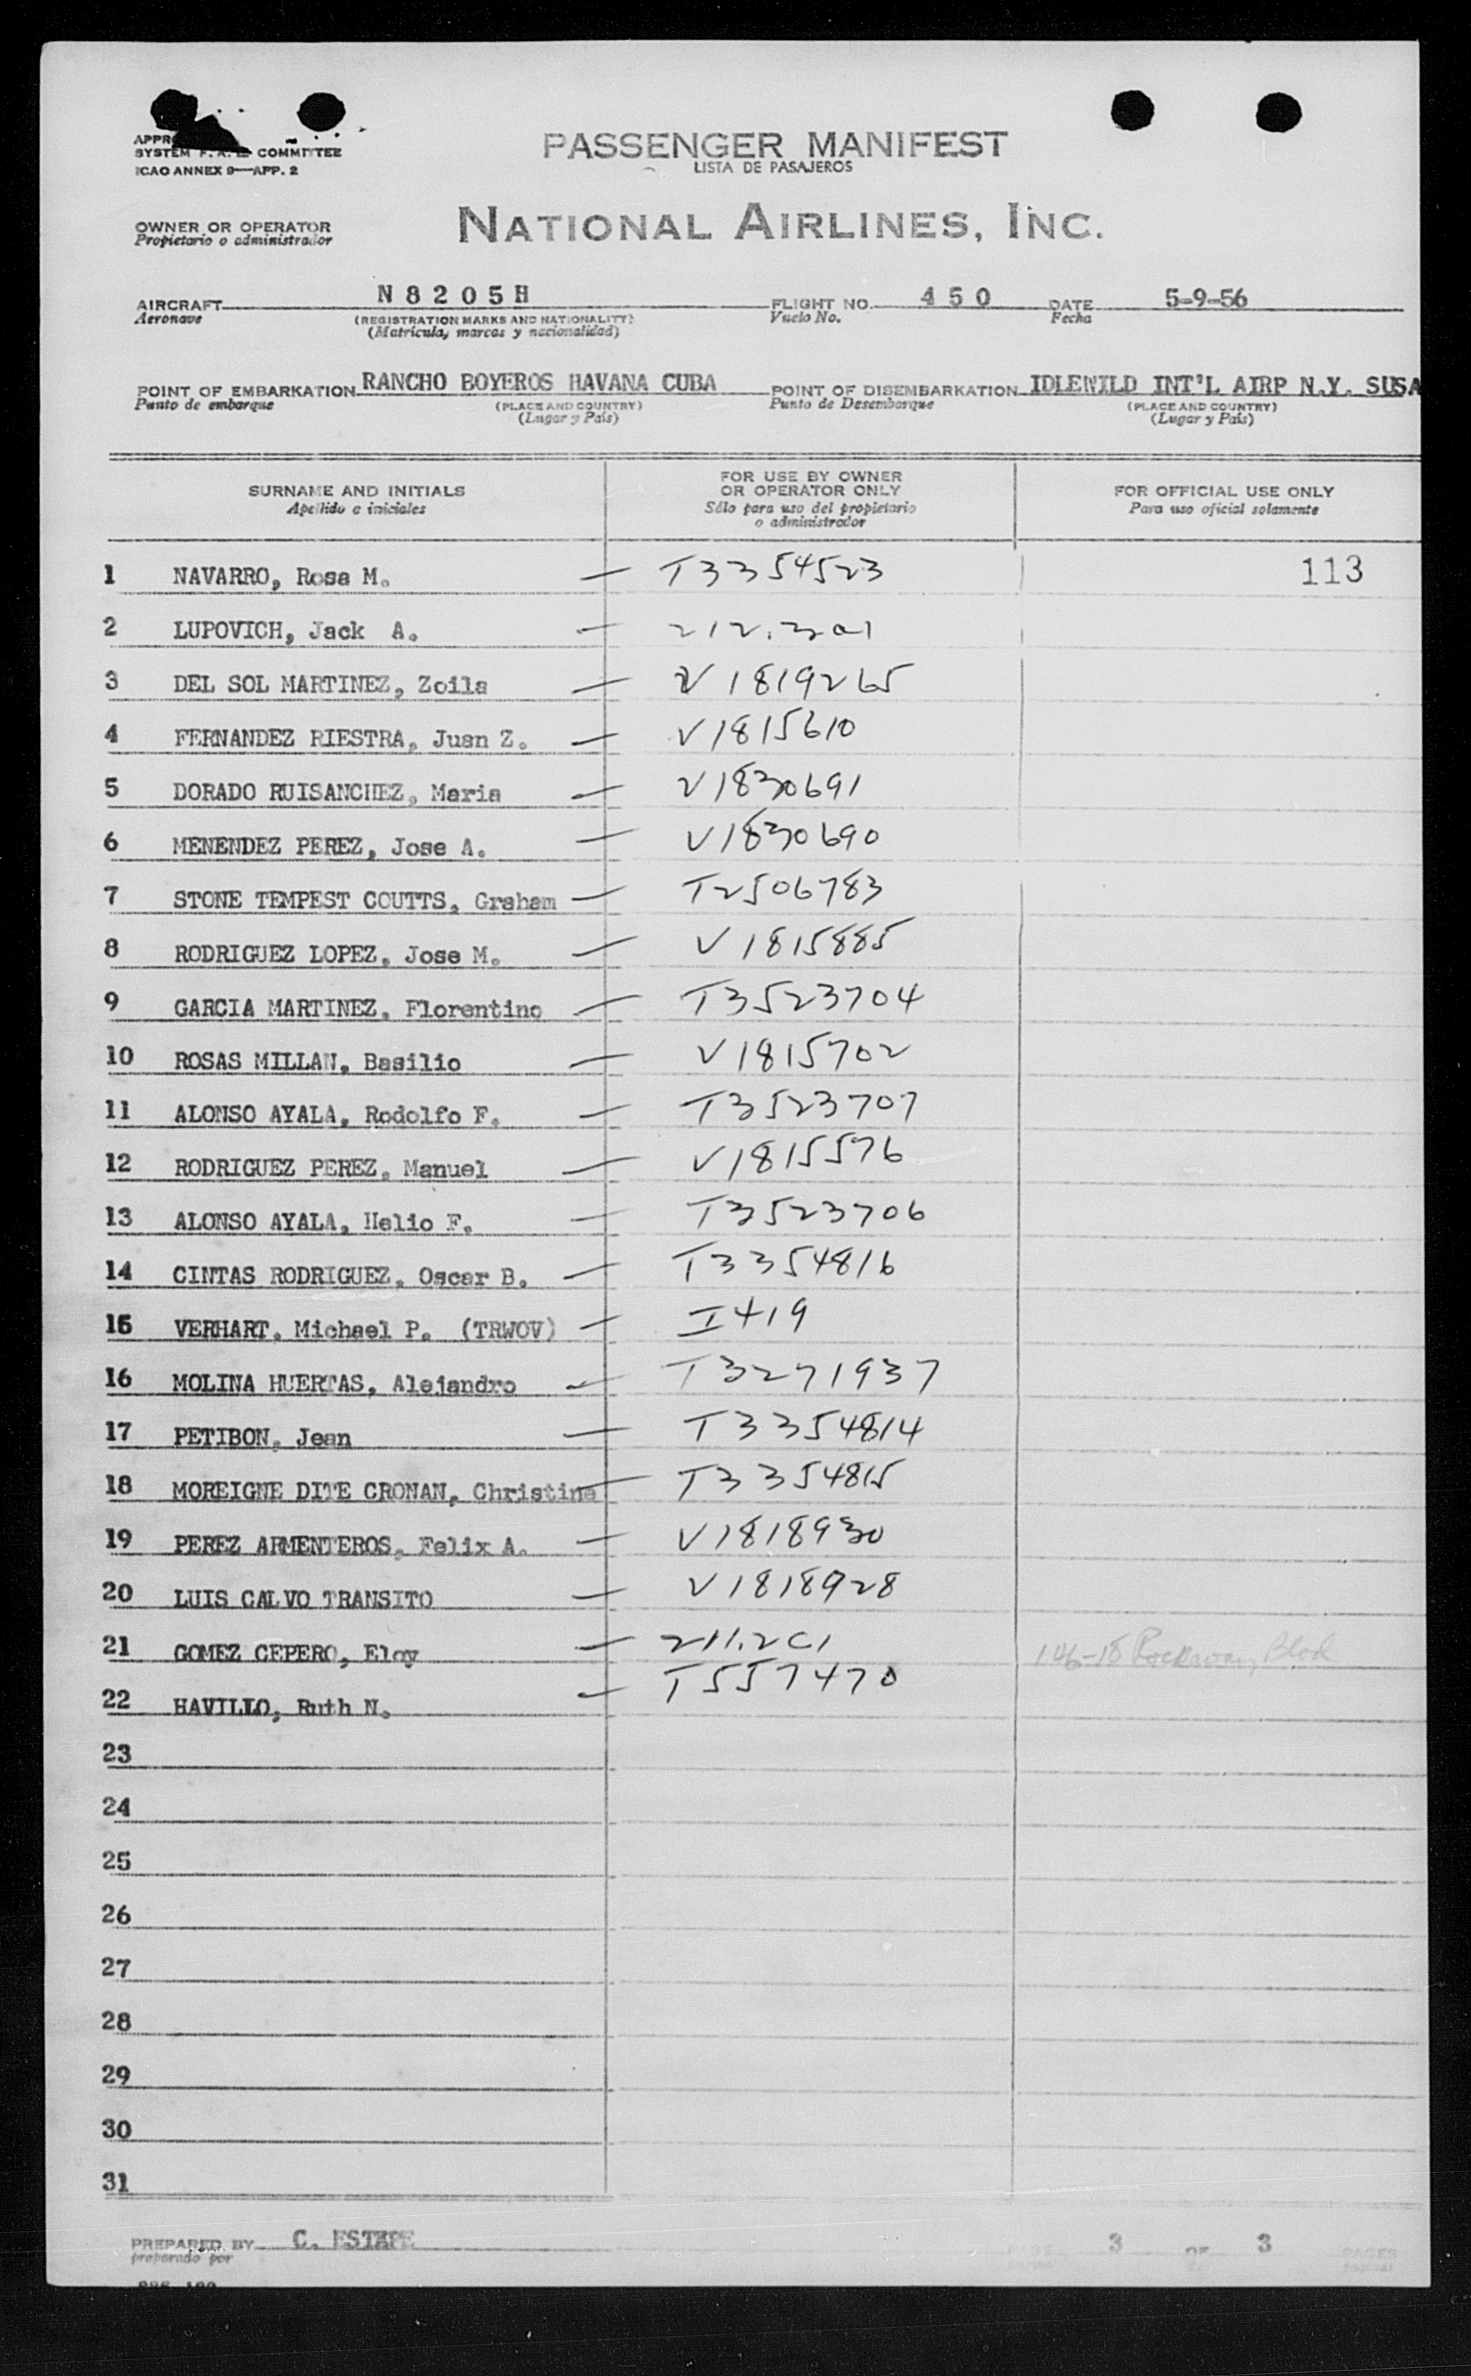 SYSTEM F. A. L. COMMITTEE
ICAO ANNEX 9—APP. 2
PASSENGER MANIFEST
LISTA DE PASAJEROS
OWNER OR OPERATOR
Propietario o administrador
NATIONAL AIRLINES, INC.
AIRCRAFT N8205H FLIGHT NO. 450 DATE 5-9-56
Aeronave (REGISTRATION MARKS AND NATIONALITY) Vuelo No. Fecha
(Matricula, marcas y nacionalidad)
POINT OF EMBARKATION RANCHO BOYEROS HAVANA CUBA POINT OF DISEMBARKATION IDLEWILD INT'L AIRP N.Y. SUSA
Punto de embarque (PLACE AND COUNTRY) Punto de Desembarque (PLACE AND COUNTRY)
(Lugar y País) (Lugar y País)
SURNAME AND INITIALS FOR USE BY OWNER OR OPERATOR ONLY FOR OFFICIAL USE ONLY
Apellido e iniciales Sólo para uso del propietario o administrador Para uso oficial solamente
1 NAVARRO, Rosa M. — T3354523 113
2 LUPOVICH, Jack A. — 212.2a1
3 DEL SOL MARTINEZ, Zoila — V1819265
4 FERNANDEZ RIESTRA, Juan Z. — V1815610
5 DORADO RUISANCHEZ, Maria — V1830691
6 MENENDEZ PEREZ, Jose A. — V1830690
7 STONE TEMPEST COUTTS, Graham — T2506783
8 RODRIGUEZ LOPEZ, Jose M. — V1815885
9 GARCIA MARTINEZ, Florentino — T3523704
10 ROSAS MILLAN, Basilio — V1815702
11 ALONSO AYALA, Rodolfo F. — T3523707
12 RODRIGUEZ PEREZ, Manuel — V1815576
13 ALONSO AYALA, Helio F. — T3523706
14 CINTAS RODRIGUEZ, Oscar B. — T3354816
15 VERHART, Michael P. (TRWOV) — I419
16 MOLINA HUERTAS, Alejandro — T3271937
17 PETIBON, Jean — T3354814
18 MOREIGNE DITE CRONAN, Christine — T3354815
19 PEREZ ARMENTEROS, Felix A. — V1818930
20 LUIS CALVO TRANSITO — V1818928
21 GOMEZ CEPERO, Eloy — 211.2C1 146-18 Rockaway Blvd
22 HAVILLO, Ruth N. — T557470
23
24
25
26
27
28
29
30
31
PREPARED BY C. ESTEPE PAGE 3 OF 3 PAGES
preparado por